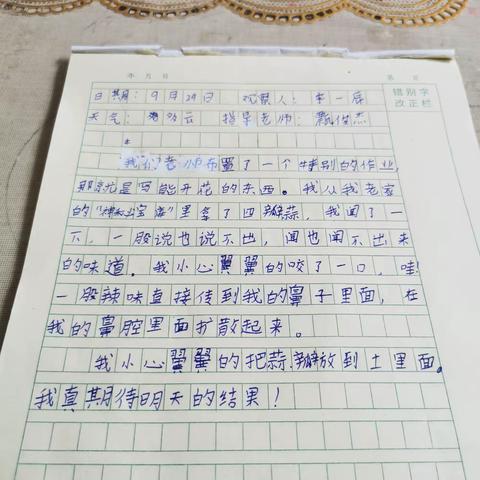 年 月 日 第 页
错别字
改正栏
日期：9月29日 观察人：李一
天气：多云 指导老师：杰
我们老师布置了一个特别的作业，
那就是写能开花的东西。我从我老家
的“神秘宝”里拿了四瓣蒜，我闻了一
下，一股说也说不出，闻也闻不出来
的味道。我小心翼翼的咬了一口，哇！
一股辣味直接传到我的鼻子里面，在
我的鼻腔里面扩散起来。
我小心翼翼的把蒜瓣放到土里面。
我真期待明天的结果！